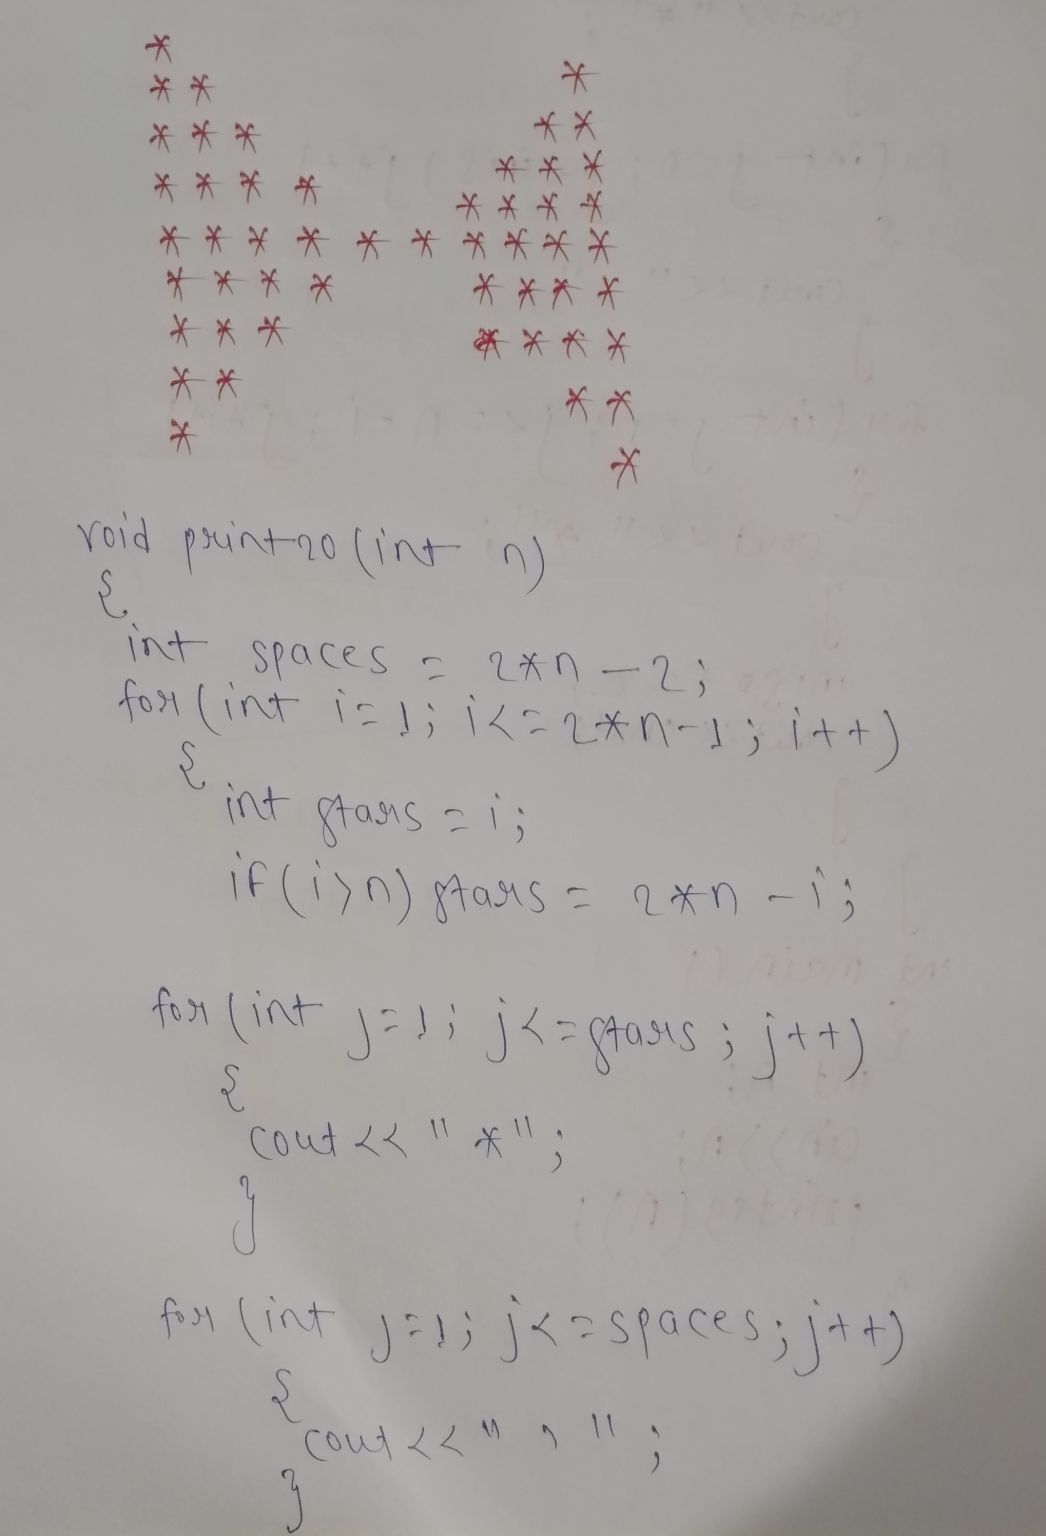 *
* * *
* * * * *
* * * * * * *
* * * * * * * *
* * * * * * * * * *
* * * * * * * *
* * * * * * *
* * * *
* *
void print20(int n)
{
int spaces = 2*n-2;
for(int i=1; i<=2*n-1; i++)
{
int stars = i;
if(i>n) stars = 2*n-i;
for(int j=1; j<=stars; j++)
{
cout<<"*";
}
for(int j=1; j<=spaces; j++)
{
cout<<" , ";
}